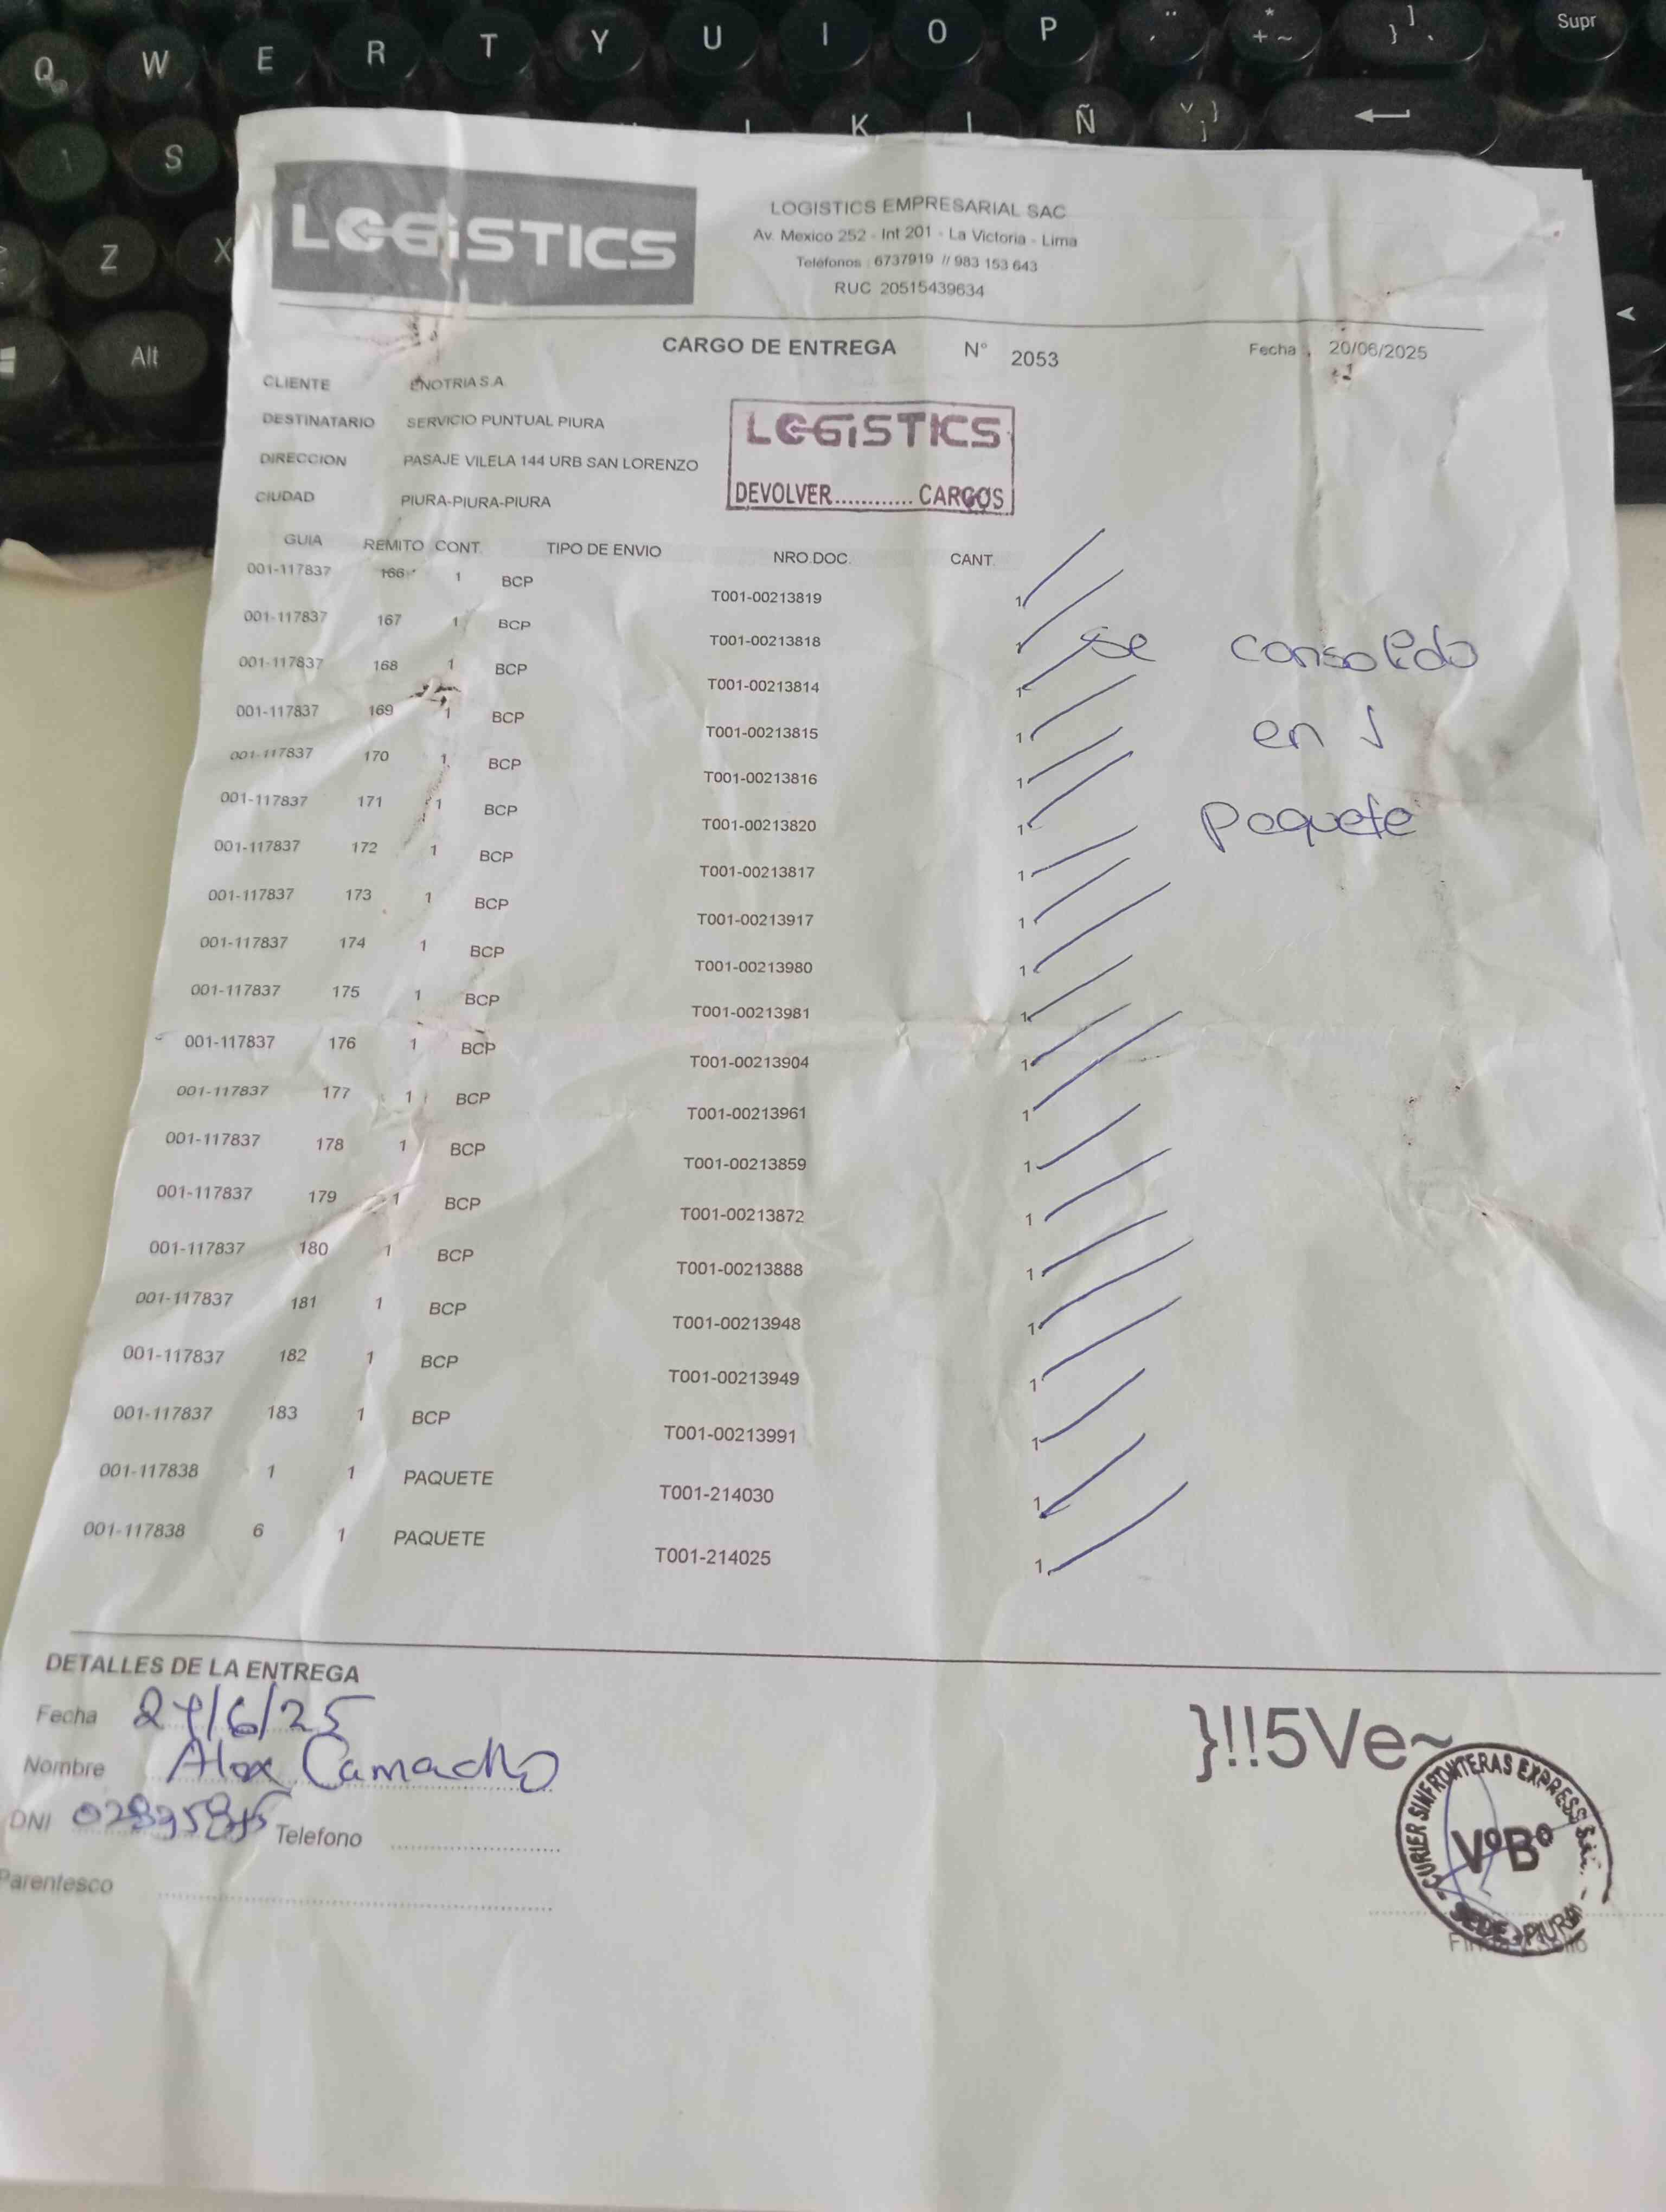 Q W E R T Y U I O P ¨ * + ~ } ] Supr
S K L Ñ
Z X
Alt
LOGISTICS
LOGISTICS EMPRESARIAL SAC
Av. Mexico 252 - Int 201 - La Victoria - Lima
Telefonos : 6737919 // 983 153 643
RUC 20515439634
CARGO DE ENTREGA N° 2053 Fecha : 20/06/2025
CLIENTE ENOTRIA S.A
DESTINATARIO SERVICIO PUNTUAL PIURA
DIRECCION PASAJE VILELA 144 URB SAN LORENZO
CIUDAD PIURA-PIURA-PIURA
LOGISTICS
DEVOLVER............ CARGOS
GUIA REMITO CONT. TIPO DE ENVIO NRO.DOC. CANT.
001-117837 166 1 BCP T001-00213819 1
001-117837 167 1 BCP T001-00213818 1
001-117837 168 1 BCP T001-00213814 1
001-117837 169 1 BCP T001-00213815 1
001-117837 170 1 BCP T001-00213816 1
001-117837 171 1 BCP T001-00213820 1
001-117837 172 1 BCP T001-00213817 1
001-117837 173 1 BCP T001-00213917 1
001-117837 174 1 BCP T001-00213980 1
001-117837 175 1 BCP T001-00213981 1
001-117837 176 1 BCP T001-00213904 1
001-117837 177 1 BCP T001-00213961 1
001-117837 178 1 BCP T001-00213859 1
001-117837 179 1 BCP T001-00213872 1
001-117837 180 1 BCP T001-00213888 1
001-117837 181 1 BCP T001-00213948 1
001-117837 182 1 BCP T001-00213949 1
001-117837 183 1 BCP T001-00213991 1
001-117838 1 1 PAQUETE T001-214030 1
001-117838 6 1 PAQUETE T001-214025 1
se consolido
en 1
paquete
DETALLES DE LA ENTREGA
Fecha
Nombre Alex Camacho
DNI Telefono
Parentesco
}!!5Ve~
CURIER SINFRONTERAS EXPRESS
V°B°
SEDE - PIURA